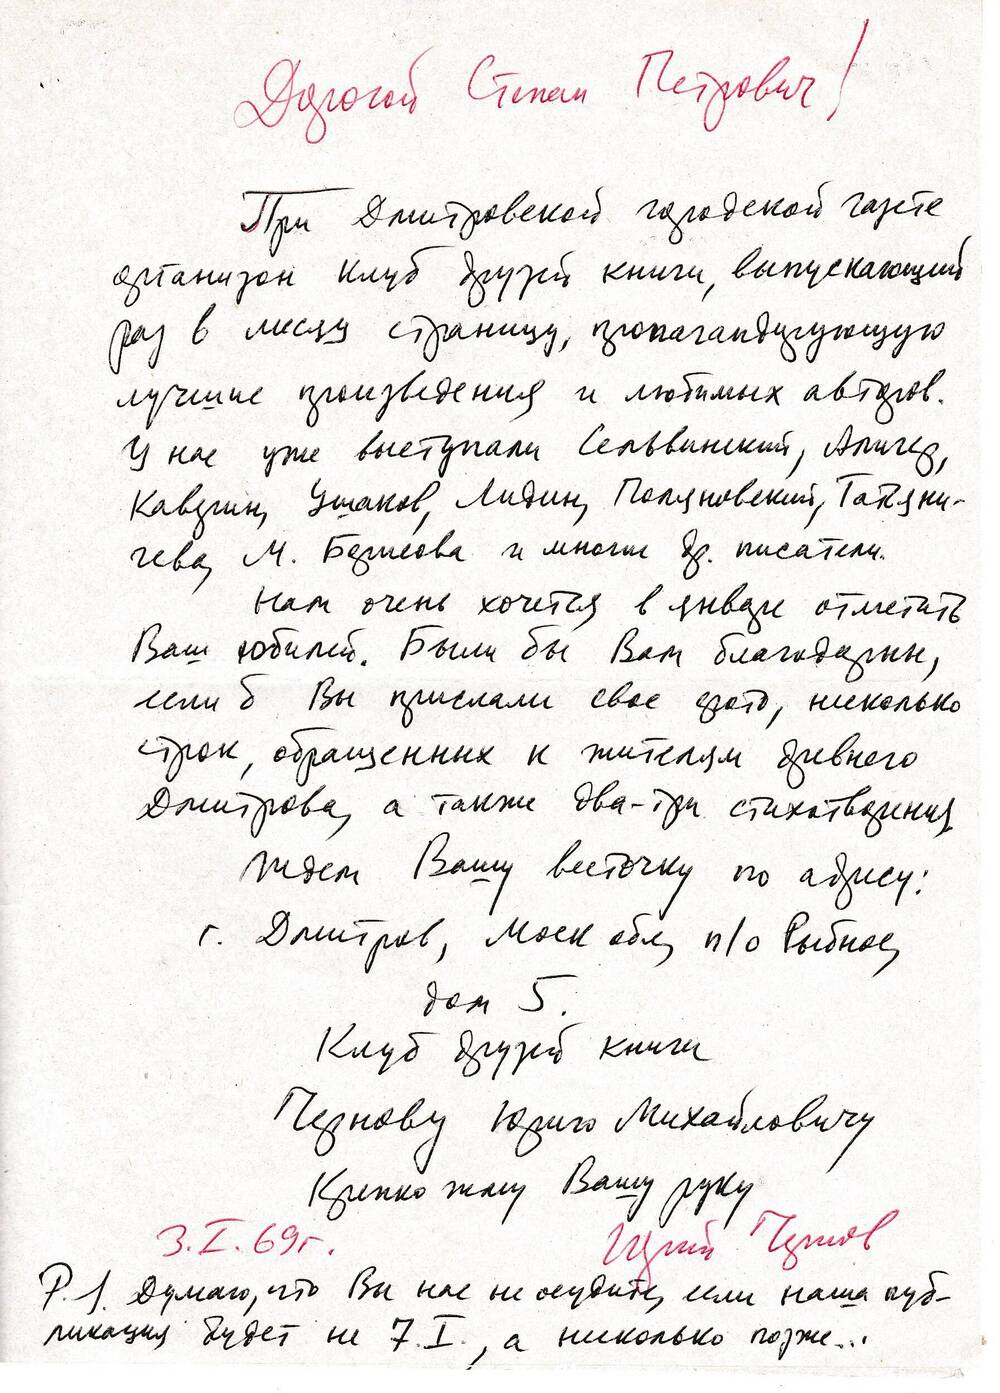 Дорогой Степан Петрович!
При Дмитровской городской газете
организован Клуб друзей книги, выпускающий
раз в месяц страницу, пропагандирующую
лучшие произведения и любимых авторов.
У нас уже выступали Сельвинский, Алигер,
Каверин, Ушаков, Лидин, Поляновский, Татьяни-
чева, М. Борисова и многие др. писатели.
Нам очень хочется в январе отметить
Ваш юбилей. Были бы Вам благодарны,
если б Вы прислали свое фото, несколько
строк, обращенных к жителям древнего
Дмитрова, а также два-три стихотворения
Ждем Вашу весточку по адресу:
г. Дмитров, Моск обл, п/о Рыбное,
дом 5.
Клуб друзей книги
Пернову Юрию Михайловичу
Крепко жму Вашу руку
3.I.69г. Юрий Пернов
P.S. Думаю, что Вы нас не осудите, если наша пуб-
ликация будет не 7.I., а несколько позже...